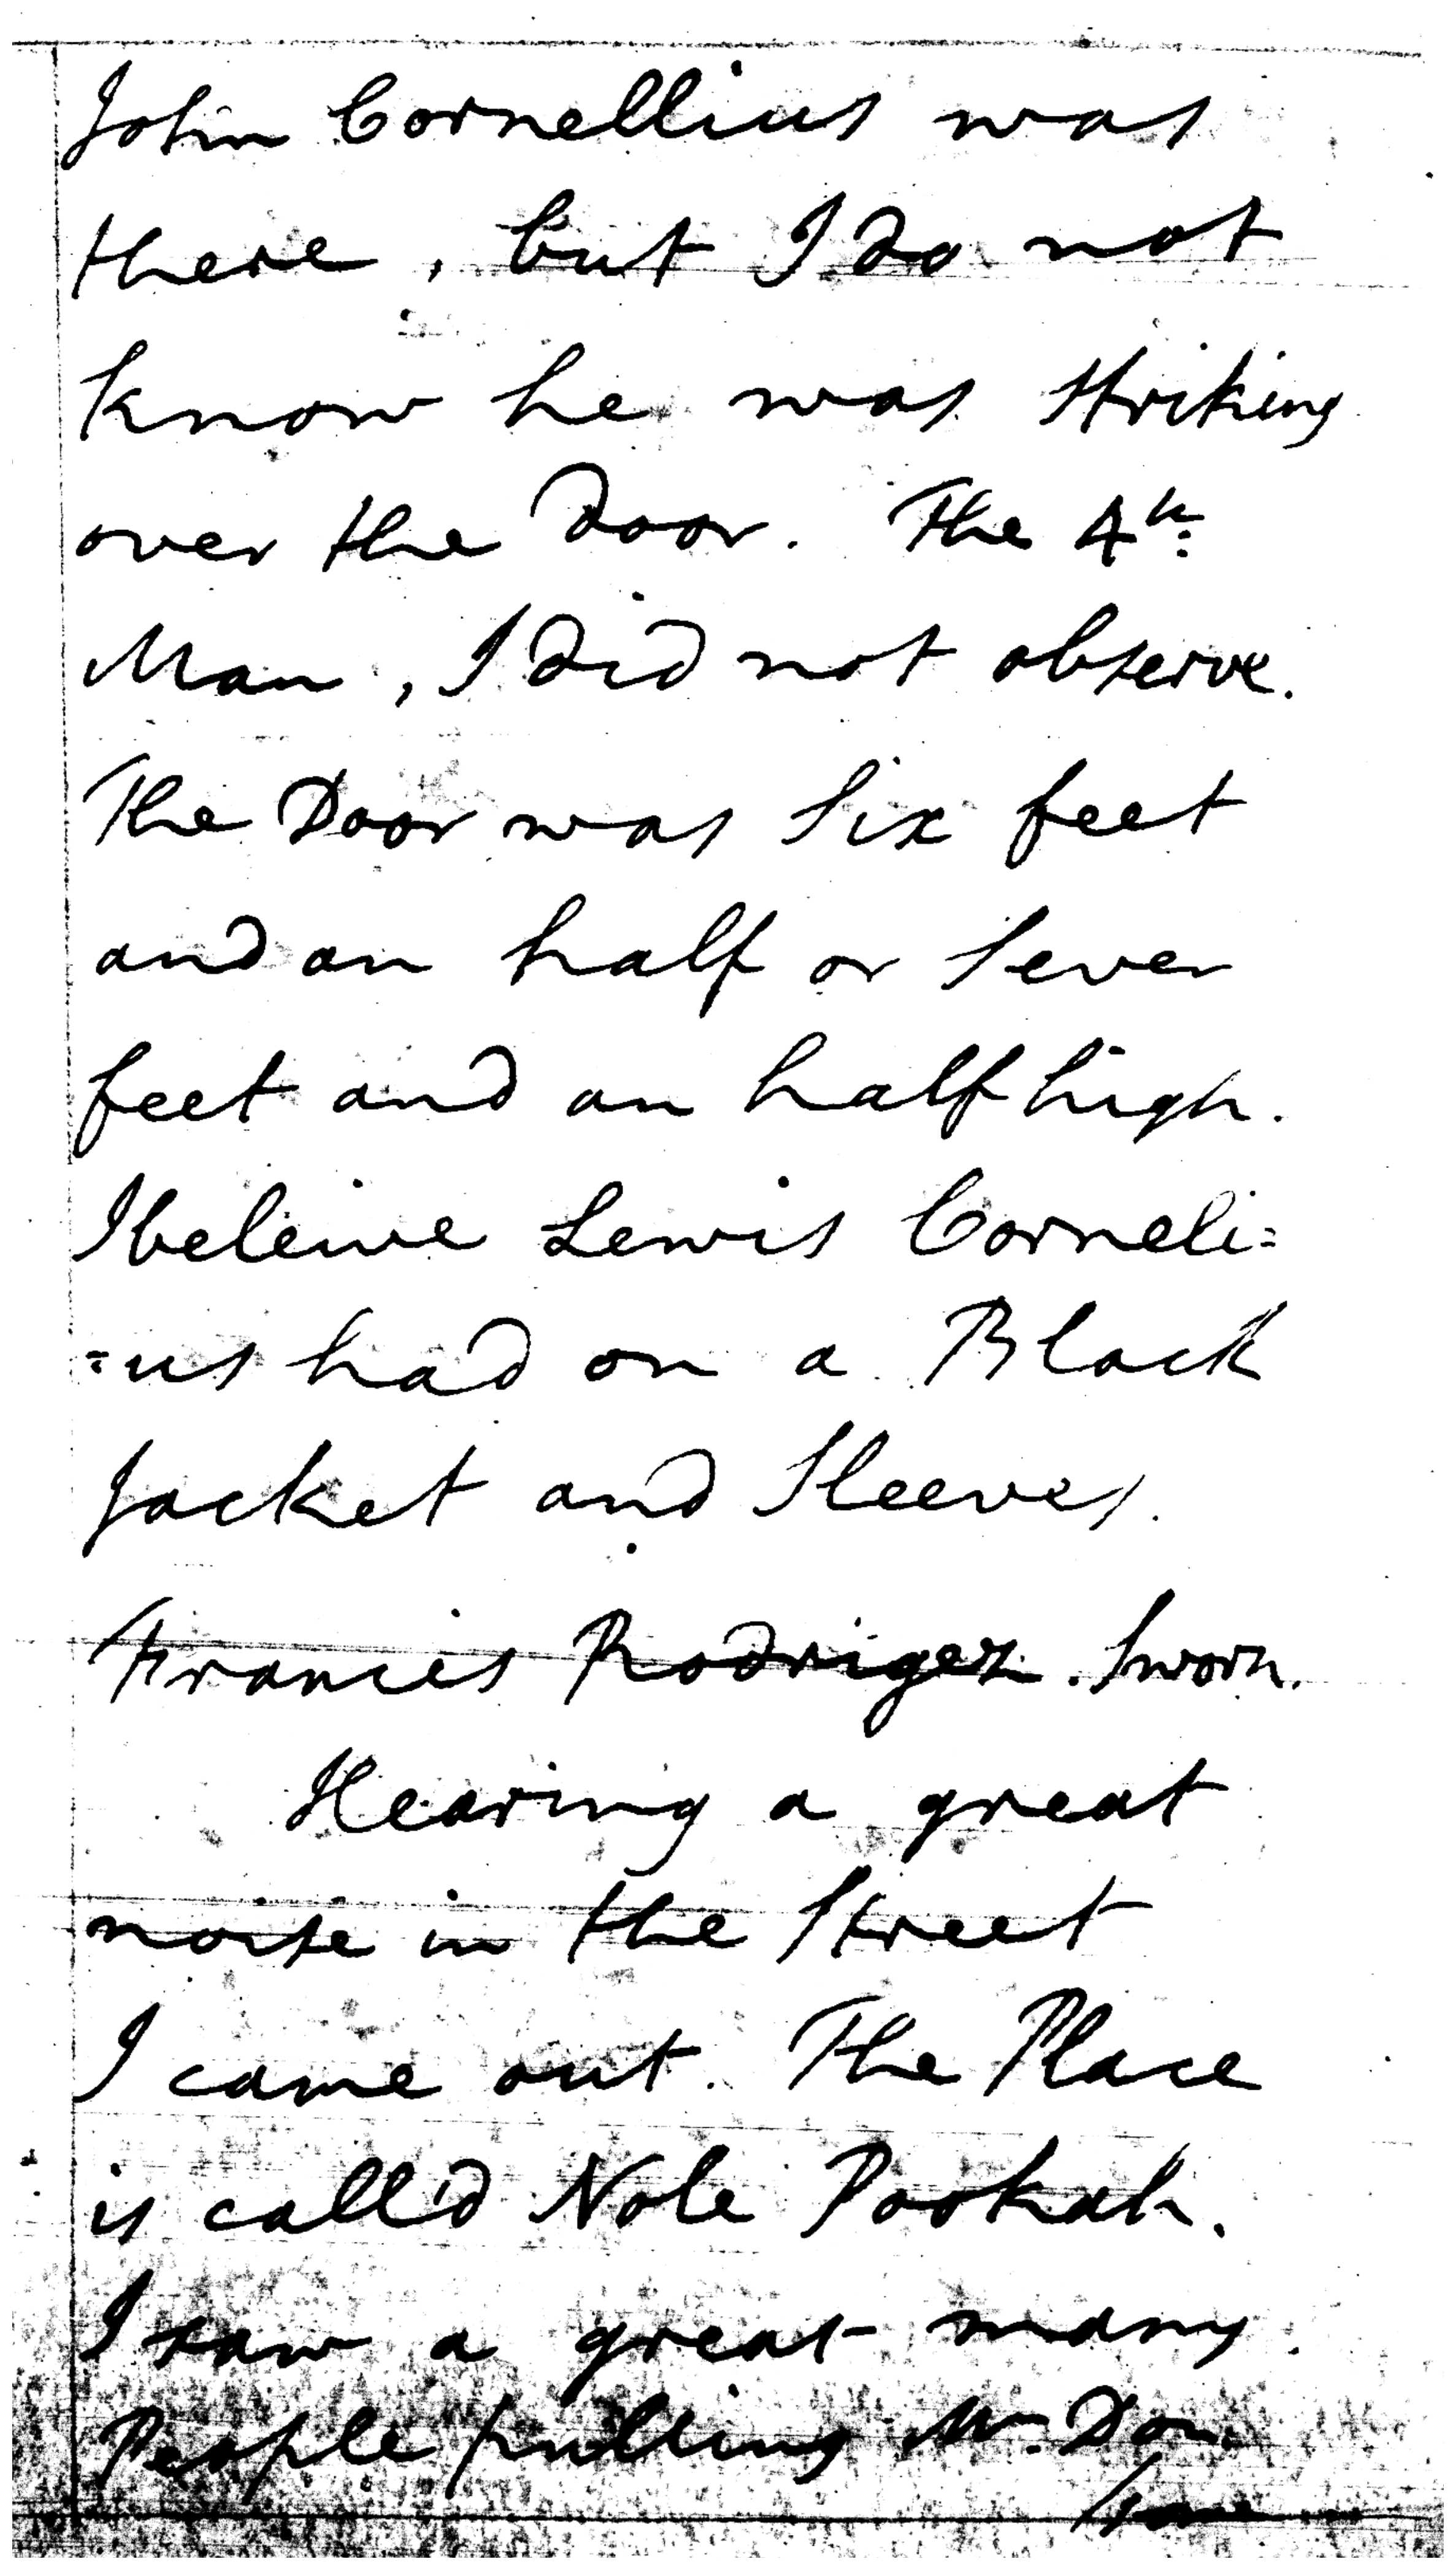 John Cornellius was
there, but I do not
know he was striking
over the Door. The 4th
Man, I did not observe.
The Door was six feet
and an half or sever
feet and an half high.
I beleive Lewis Corneli=
=us had on a Black
Jacket and Sleeves.
Francis Rodrigez. Sworn.
Hearing a great
noise in the Street
I came out. The Place
is call'd Nole Pookah.
I saw a great many
People pulling Mr. Dom.